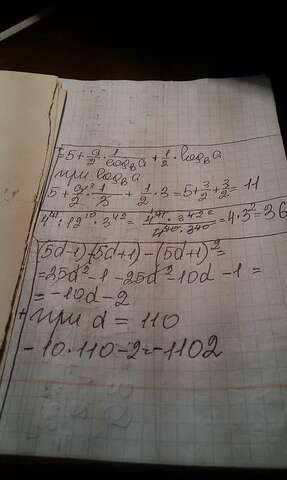 = 5 + 9/2 · 1/log_b a + 1/2 · log_b a
при log_b a
5 + 9/2 · 1/3 + 1/2 · 3 = 5 + 3/2 + 3/2 = 11
= 4 · 3² = 36
(5d-1)(5d+1) - (5d+1)² =
= 25d² - 1 - 25d² - 10d - 1 =
= -10d - 2
при d = 110
-10·110-2=-1102